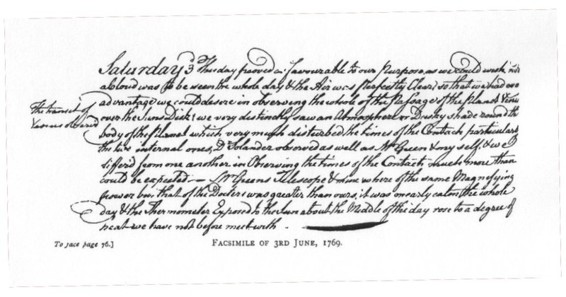 Saturday 3d This day proved as favourable to our purpose as we could wish, not
a Cloud was to be seen the whole day & the Air was perfectly Clear, so that we had every
advantage we could desire in observing the whole of the Passage of the planet Venus
over the Suns Disk: we very distinctly saw an Atmosphere or Dusky shade round the
body of the planet which very much disturbed the times of the Contacts particularly
the two internal ones, Dr Solander observed as well as Mr Green & my self, & we
differ'd from one another in Observing the times of the Contacts much more than
could be expected — Mr Greens Telescope & mine where of the same Magnifying
power but that of the Doctors was greater than ours, it was nearly calm the whole
day & the Thermometer Exposed to the Sun about the Middle of the day rose to a degree of
heat we have not before met with.
The transit of
Venus observed
To face page 76.]
FACSIMILE OF 3RD JUNE, 1769.